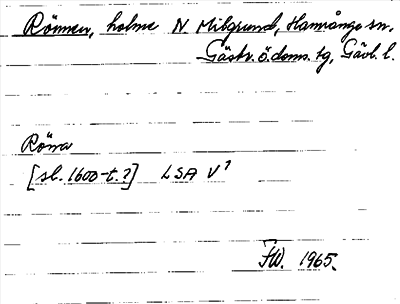 Rönnen, holme N Milgrund, Hamrånge sn,
Gästr. ö. doms. tg, Gävl. l.
Röna
[sl. 1600-t.?] LSA V¹
FW. 1965.